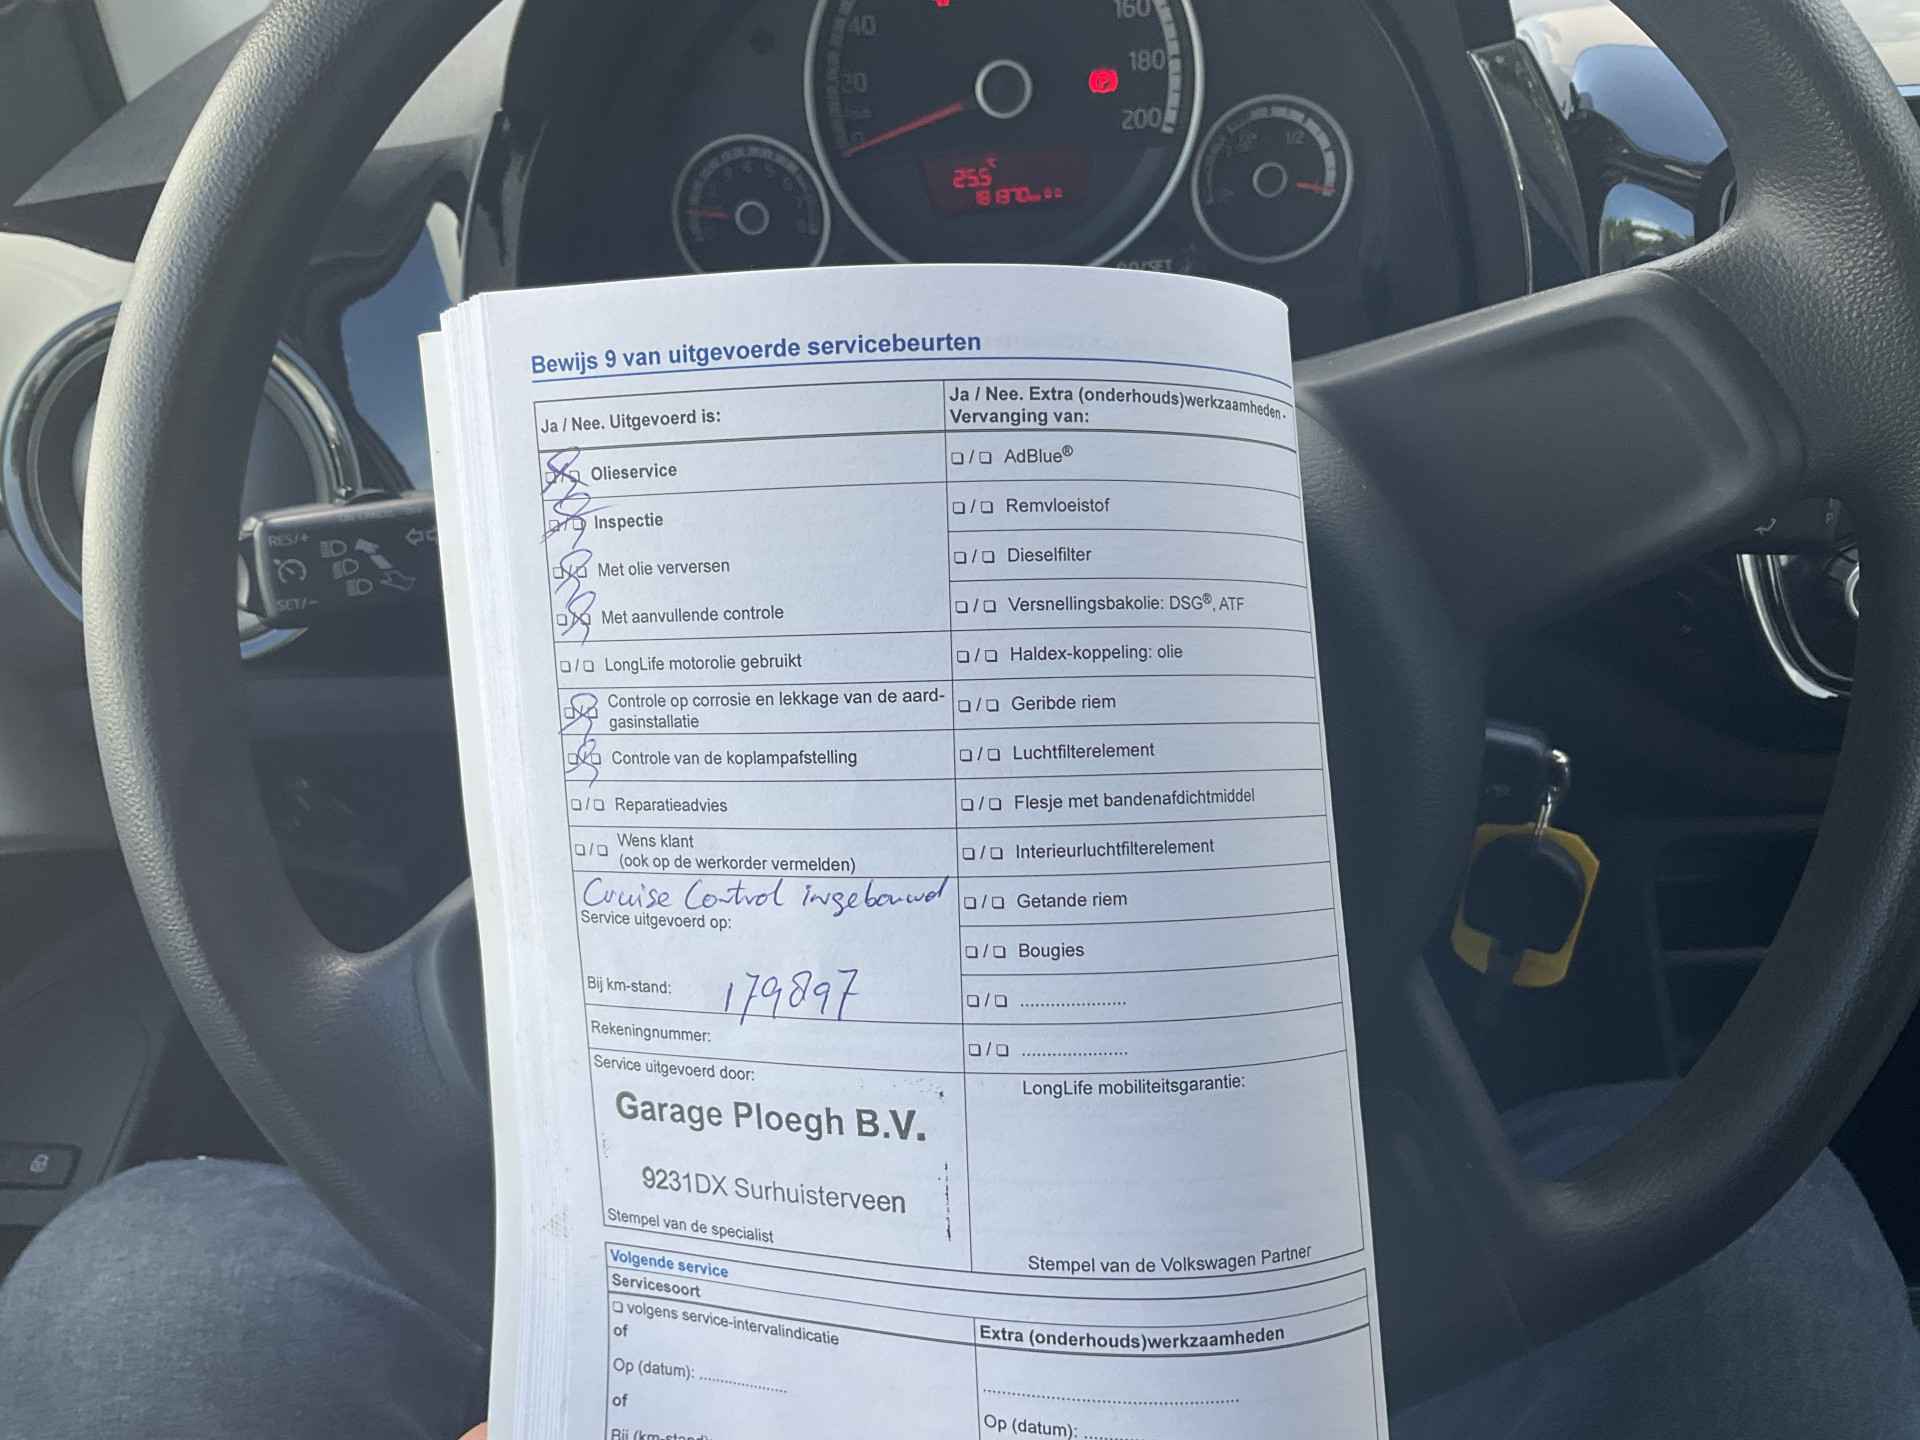 40
160
20
180
200
0
1/2
25.5 °C
181370 km
RES/+
SET/-
Bewijs 9 van uitgevoerde servicebeurten
Ja / Nee. Uitgevoerd is:
☐ / ☐ Olieservice
☐ / ☐ Inspectie
☐ / ☐ Met olie verversen
☐ / ☐ Met aanvullende controle
☐ / ☐ LongLife motorolie gebruikt
☐ / ☐ Controle op corrosie en lekkage van de aard-
gasinstallatie
☐ / ☐ Controle van de koplampafstelling
☐ / ☐ Reparatieadvies
☐ / ☐ Wens klant
(ook op de werkorder vermelden)
Cruise Control ingebouwd
Service uitgevoerd op:
Bij km-stand: 179897
Rekeningnummer:
Service uitgevoerd door:
Garage Ploegh B.V.
9231DX Surhuisterveen
Stempel van de specialist
Ja / Nee. Extra (onderhouds)werkzaamheden.
Vervanging van:
☐ / ☐ AdBlue®
☐ / ☐ Remvloeistof
☐ / ☐ Dieselfilter
☐ / ☐ Versnellingsbakolie: DSG®, ATF
☐ / ☐ Haldex-koppeling: olie
☐ / ☐ Geribde riem
☐ / ☐ Luchtfilterelement
☐ / ☐ Flesje met bandenafdichtmiddel
☐ / ☐ Interieurluchtfilterelement
☐ / ☐ Getande riem
☐ / ☐ Bougies
☐ / ☐ .....................
☐ / ☐ .....................
LongLife mobiliteitsgarantie:
Stempel van de Volkswagen Partner
Volgende service
Servicesoort
☐ volgens service-intervalindicatie
of
Op (datum): .................
of
Bij (km-stand):
Extra (onderhouds)werkzaamheden
.................................................
Op (datum): ............